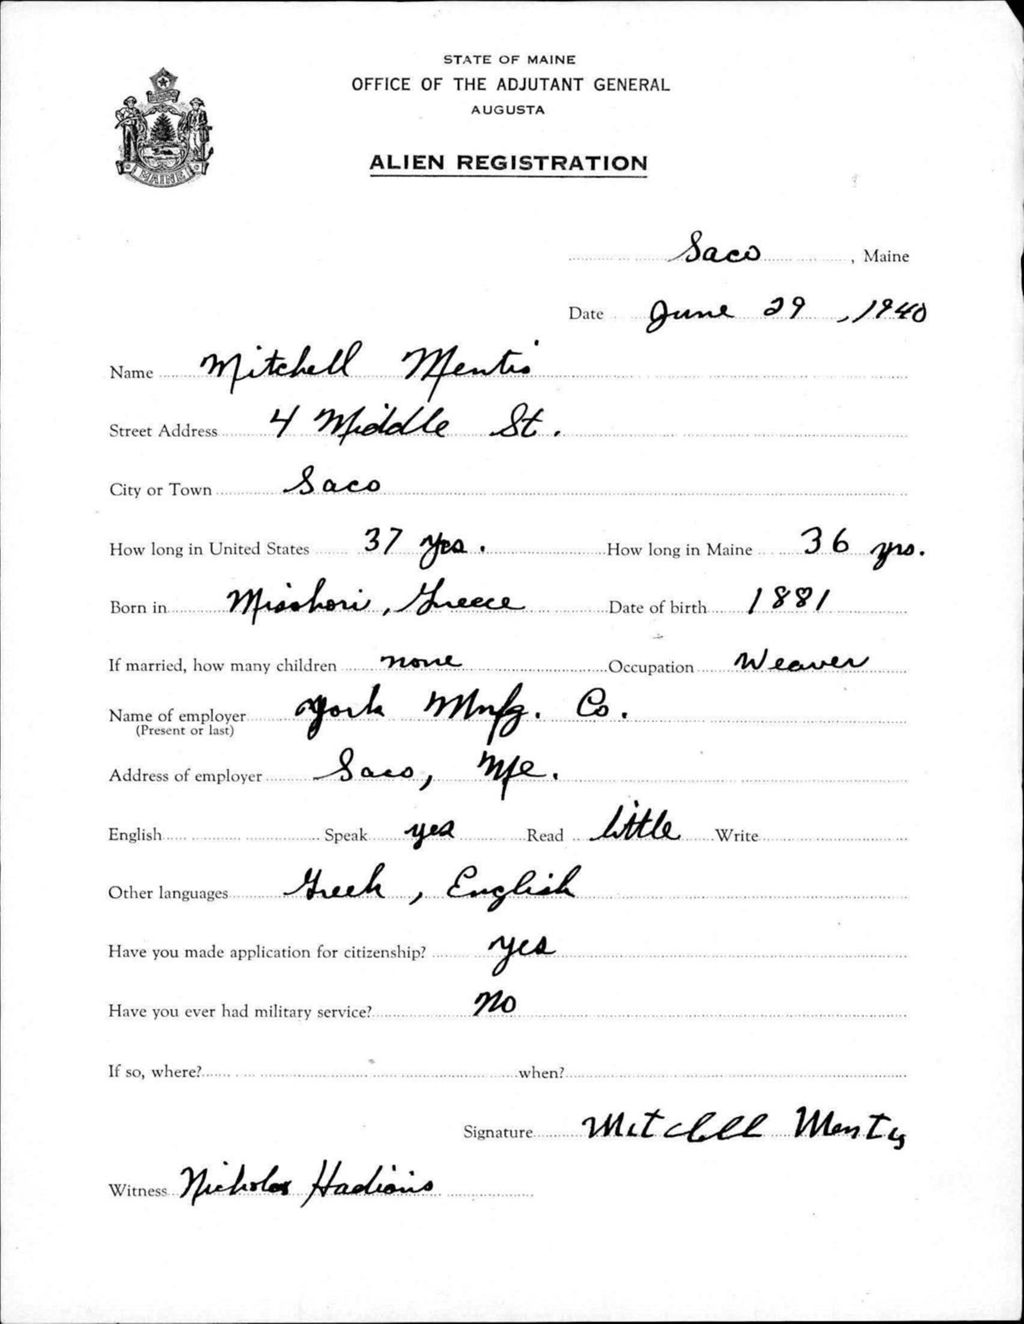 STATE OF MAINE
OFFICE OF THE ADJUTANT GENERAL
AUGUSTA
MAINE
ALIEN REGISTRATION
Saco, Maine
Date June 29, 1940
Name Mitchell Mentis
Street Address 4 Middle St.
City or Town Saco
How long in United States 37 yrs. How long in Maine 36 yrs.
Born in Greece Date of birth 1881
If married, how many children none Occupation Weaver
Name of employer York Mnfg. Co.
(Present or last)
Address of employer Saco, Me.
English Speak yes Read little Write
Other languages Greek, English
Have you made application for citizenship? yes
Have you ever had military service? No
If so, where? when?
Signature Mitchell
Witness Nicholas